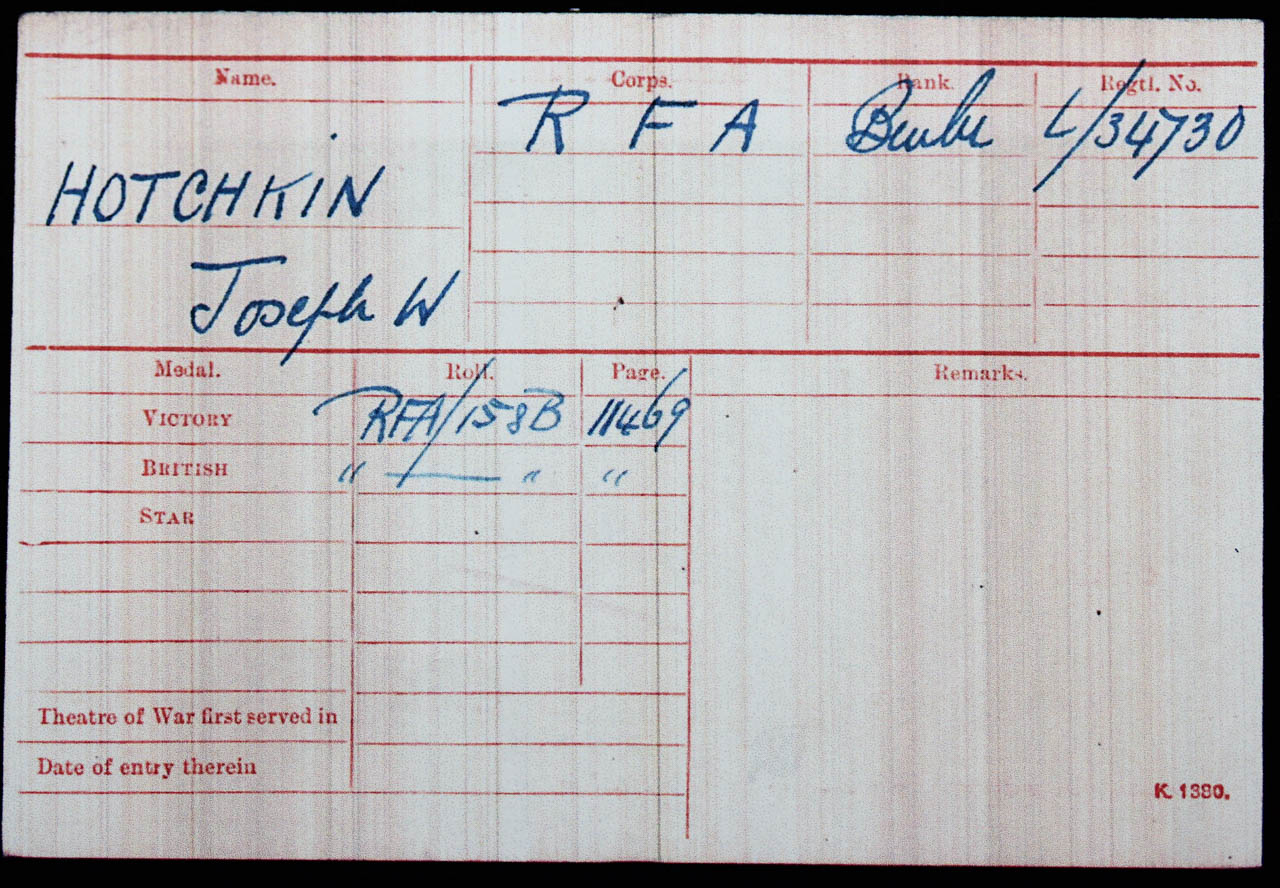 Name. Corps. Rank. Regtl. No.
R F A L/34730
HOTCHKIN
Joseph W
Medal. Roll. Page. Remarks.
VICTORY RFA/158B 11469
BRITISH " — " "
STAR
Theatre of War first served in
Date of entry therein
K. 1380.